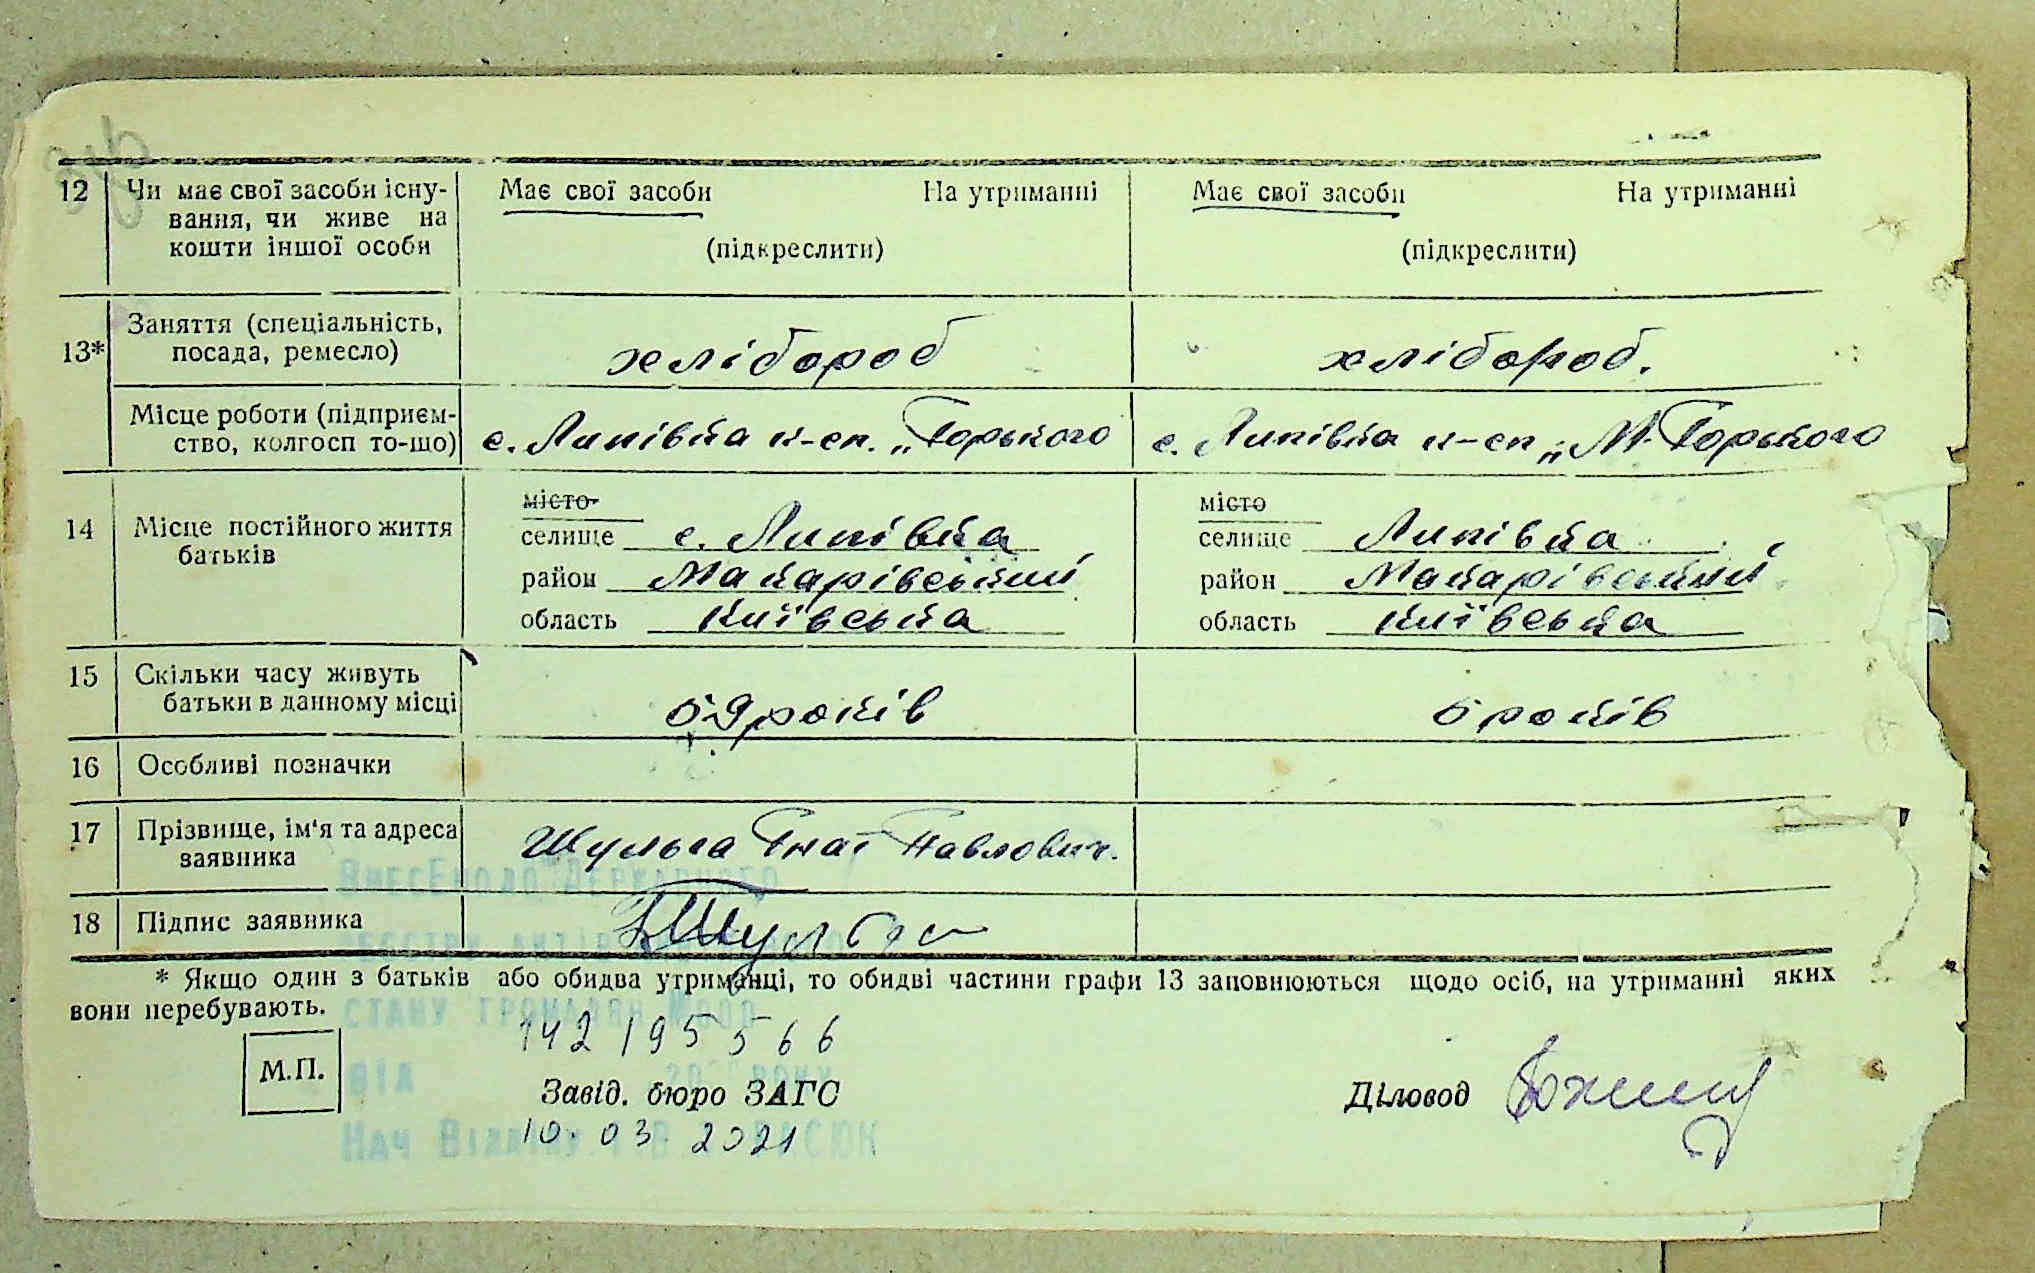 12 Чи має свої засоби існу- Має свої засоби На утриманні Має свої засоби На утриманні
вання, чи живе на
кошти іншої особи (підкреслити) (підкреслити)
13* Заняття (спеціальність,
посада, ремесло) хлібороб хлібороб.
Місце роботи (підприєм-
ство, колгосп то-що) с. Липівка к-сп. „Горького с. Липівка к-сп „М. Горького
місто місто
14 Місце постійного життя селище с. Липівка селище Липівка
батьків район Макарівський район Макарівський
область Київська область Київська
15 Скільки часу живуть
батьки в данному місці років років
16 Особливі позначки
17 Прізвище, ім'я та адреса Шульга Гнат Павлович.
заявника
Внесено до Державного
18 Підпис заявника Шульга
* Якщо один з батьків або обидва утриманці, то обидві частини графи 13 заповнюються щодо осіб, на утриманні яких
вони перебувають.
стану громадян
142 195 5 6 6
М.П. від року
Завід. бюро ЗАГС Діловод
10. 03. 2021
Нач Відділу